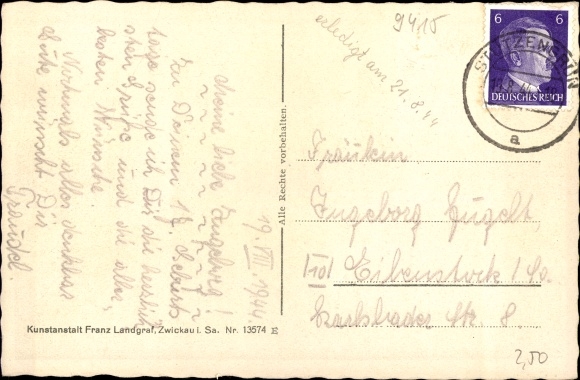 19.VIII.1944.
Meine liebe Ingeborg!
Zu Deinem 17. Geburts
tage sende ich Dir die herzlich
sten Grüße und die aller,
besten Wünsche.
Nochmals alles denkbar
Gute wünscht Dir
Traudel.
erledigt am 21.8.44
9415
6 6
DEUTSCHES REICH
STÜTZENGRÜN
a
Alle Rechte vorbehalten.
Fräulein
Ingeborg
(10) Eibenstock / Sa.
Karlsbader Str. 8.
Kunstanstalt Franz Landgraf, Zwickau i. Sa. Nr. 13574 E
2,50